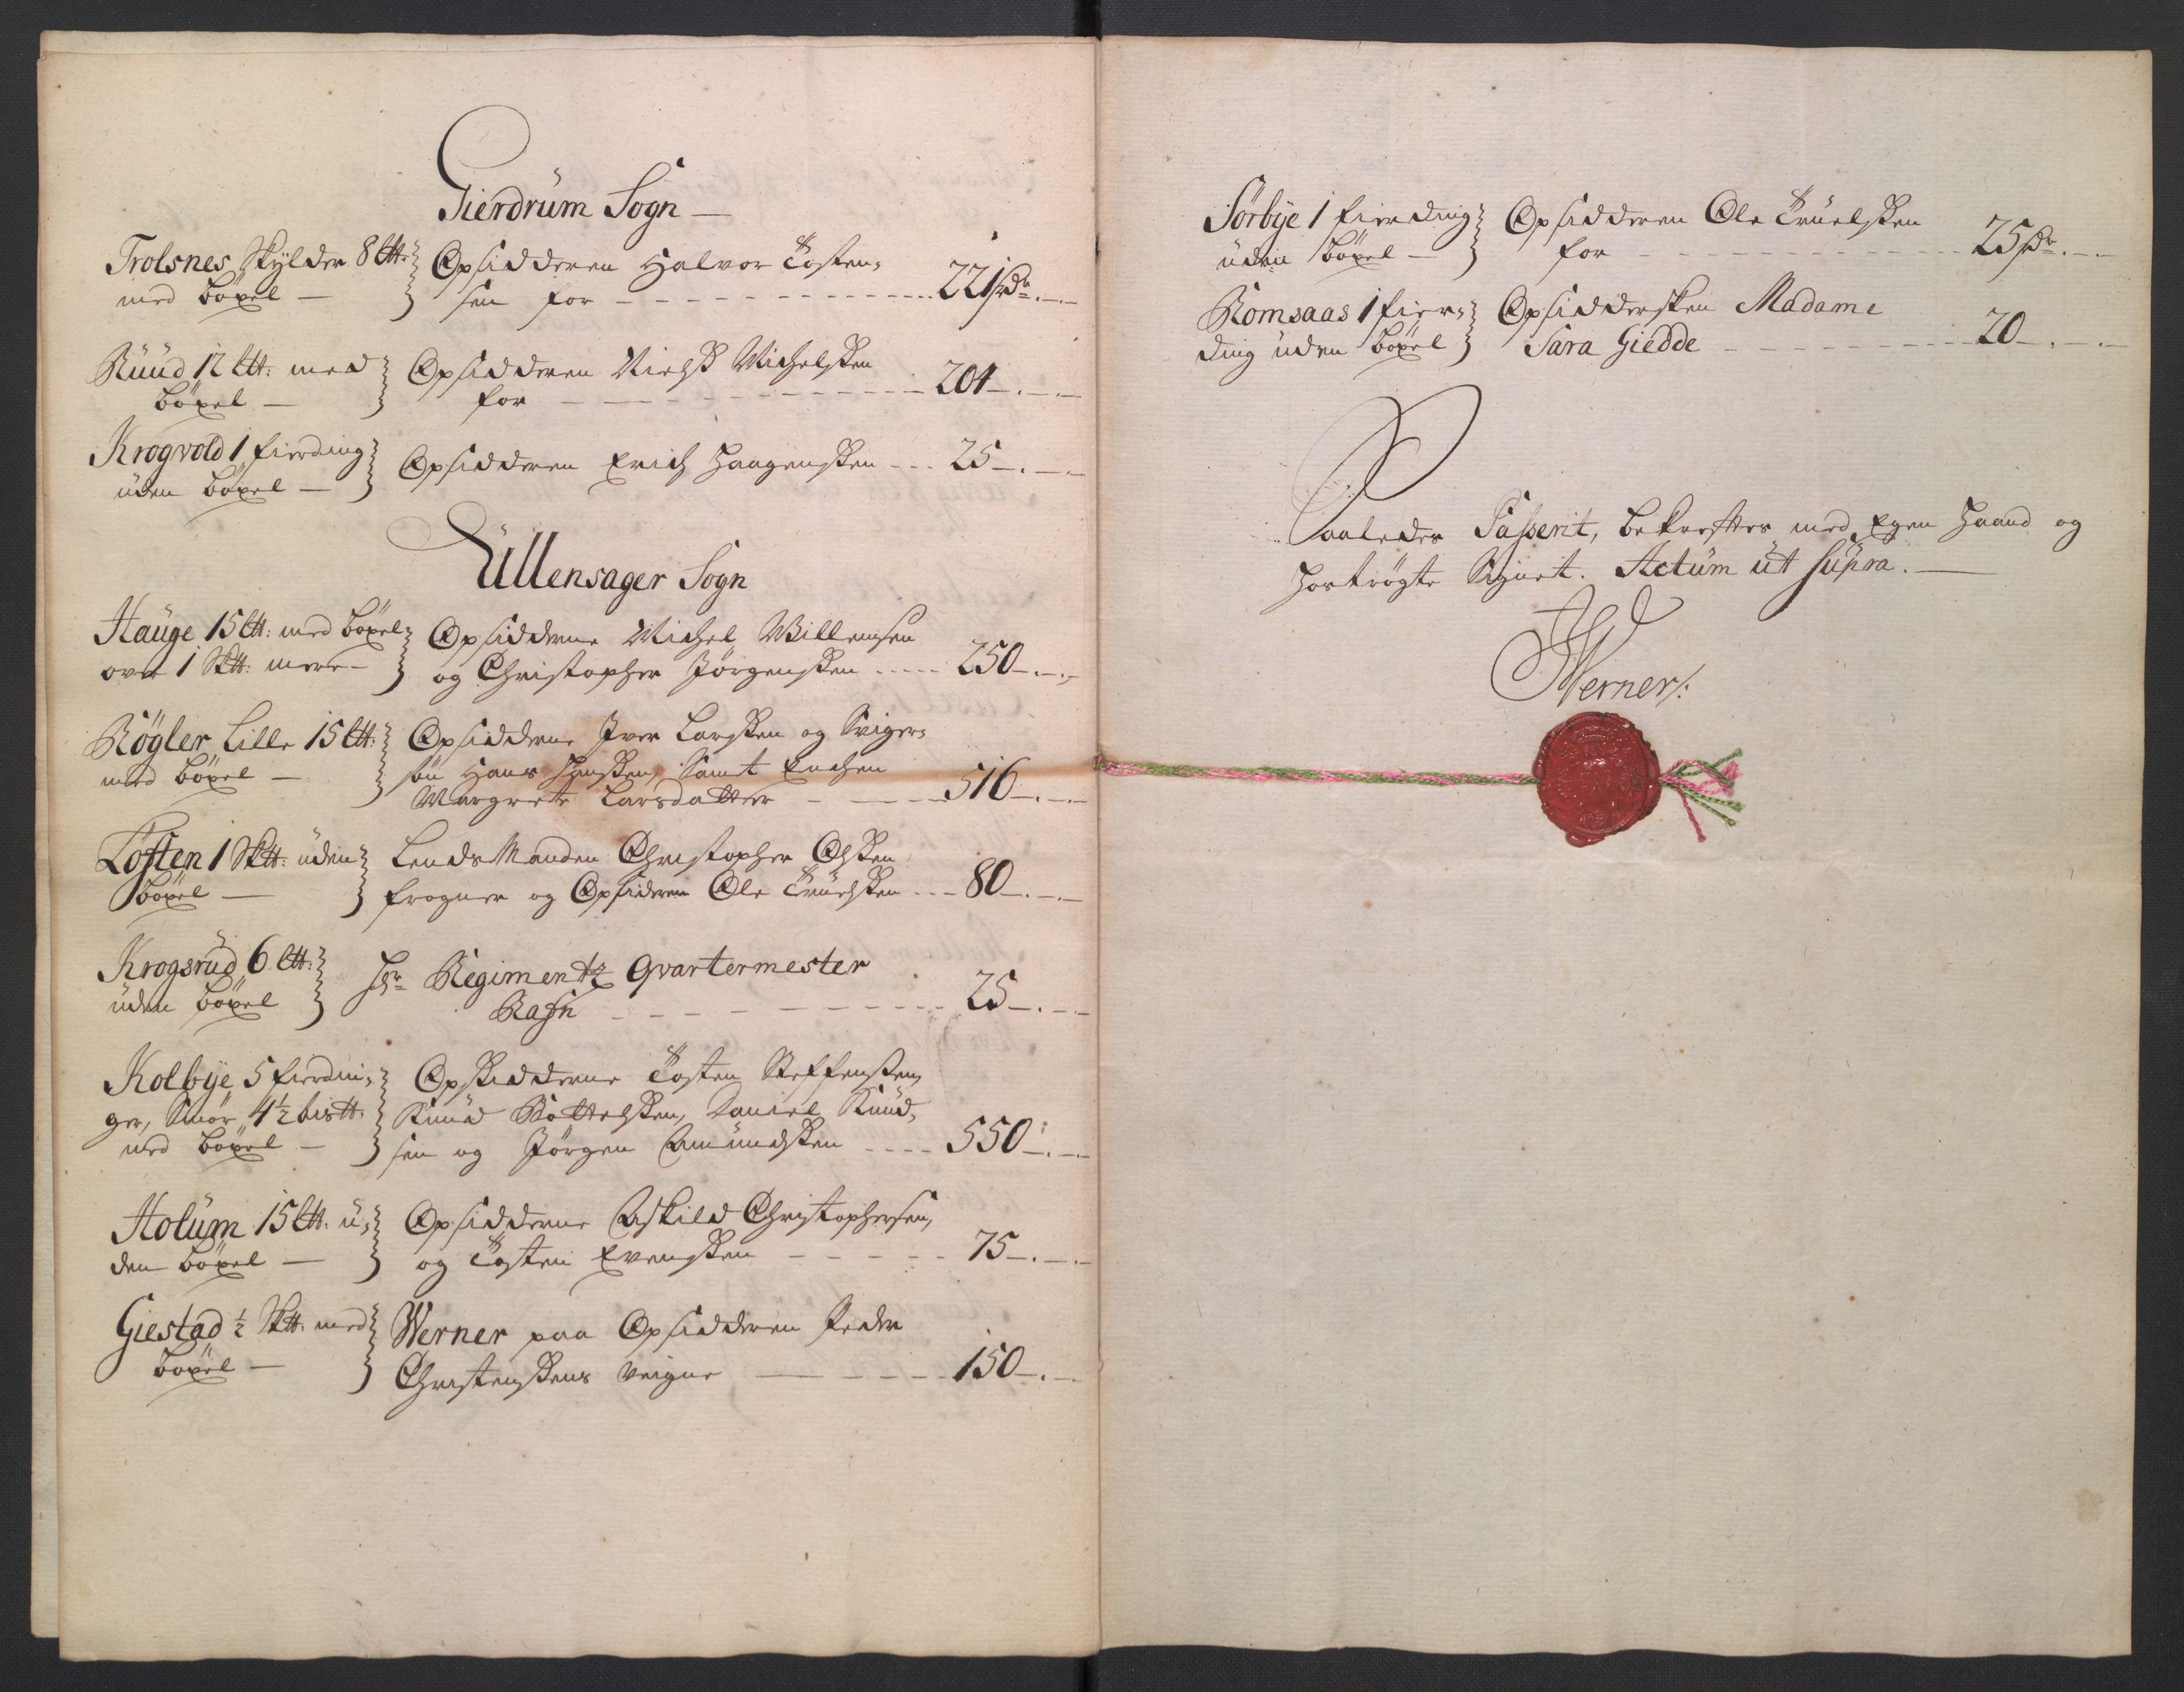 Gierdrum Sogn
Trolsnes Skylder 8 ℔:
med böxel
Opsidderen Halvor Tosten-
sen for 221 rdr
Ruud 12 ℔: med
böxel
Opsidderen Nielß Michelßen
for 204
Krogvold 1 fierding
uden böxel
Opsidderen Erich Haagenßen 25
Ullensager Sogn
Hauge 15 ℔: med böxel
over 1 Sk℔: mere
Opsidderne Michel Willemsen
og Christopher Jörgenßen 250
Rögler Lille 15 ℔:
med böxel
Opsidderne Iver Larßen og Sviger-
sön Hans Jenßen, Samt Enchen
Margrete Larsdatter 516
Toften 1 Sk℔: uden
böxel
LendsManden Christopher Olßen
frogner og Opsideren Ole Truelßen 80
Krogsrud 6 ℔:
uden böxel
Hr Regimentz Qvartermester
Rasn 25
Kolbye 5 fierdin-
ger, Smör 4½ bis℔:
med böxel
Opsidderne Tosten Steffenßen,
Knud Kottelßen, Daniel Knud-
sen og Jörgen Amundßen 550
Holum 15 ℔: u-
den böxel
Opsidderne Askild Christophersen,
og Tosten Evenßen 75
Giestad ½ Sk℔: med
böxel
Werner paa Opsidderen Peder
Christenßens veigne 150
Sörbye 1 fierding
uden böxel
Opsidderen Ole Truelßen
for 25 rdr
Romsaas 1 fier-
ding uden böxel
Opsiddersken Madame
Sara Giedde 20
Saaledes Passerit, bekrefter med Egen Haand og
hoströgte Signet. Actum ut supra.
Werner